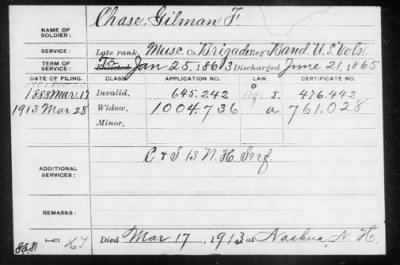 NAME OF SOLDIER: Chase, Gilman F.
SERVICE: Late rank, Musc Co. Brigade Reg't Band U.S. Vols.
TERM OF SERVICE: To Jan 25, 1863 Discharged June 21, 1865
DATE OF FILING. CLASS. APPLICATION NO. LAW. CERTIFICATE NO.
1888 Mar. 17 Invalid, 645.242 S. 476.442
1913 Mar 28 Widow, 1004.736 a 761.028
Minor,
ADDITIONAL SERVICES: C & I 13 N. H. Inf.
Died Mar 17, 1913 at Nashua, N. H.